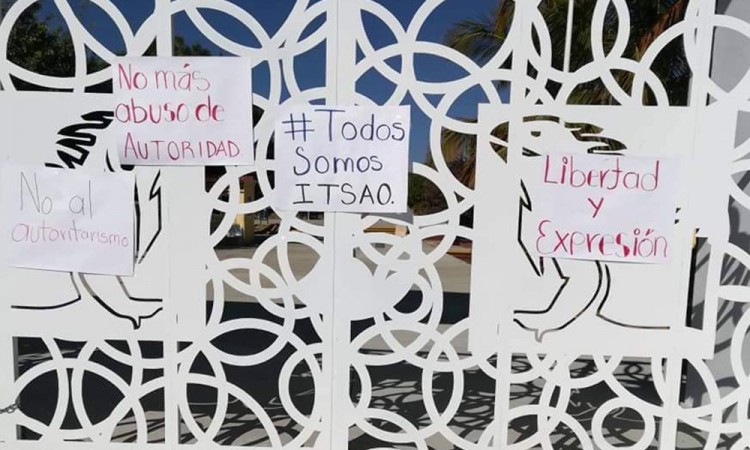 No más
abuso de
AUTORIDAD
No al
autoritarismo
#Todos
Somos
ITSAO.
Libertad
y
Expresión